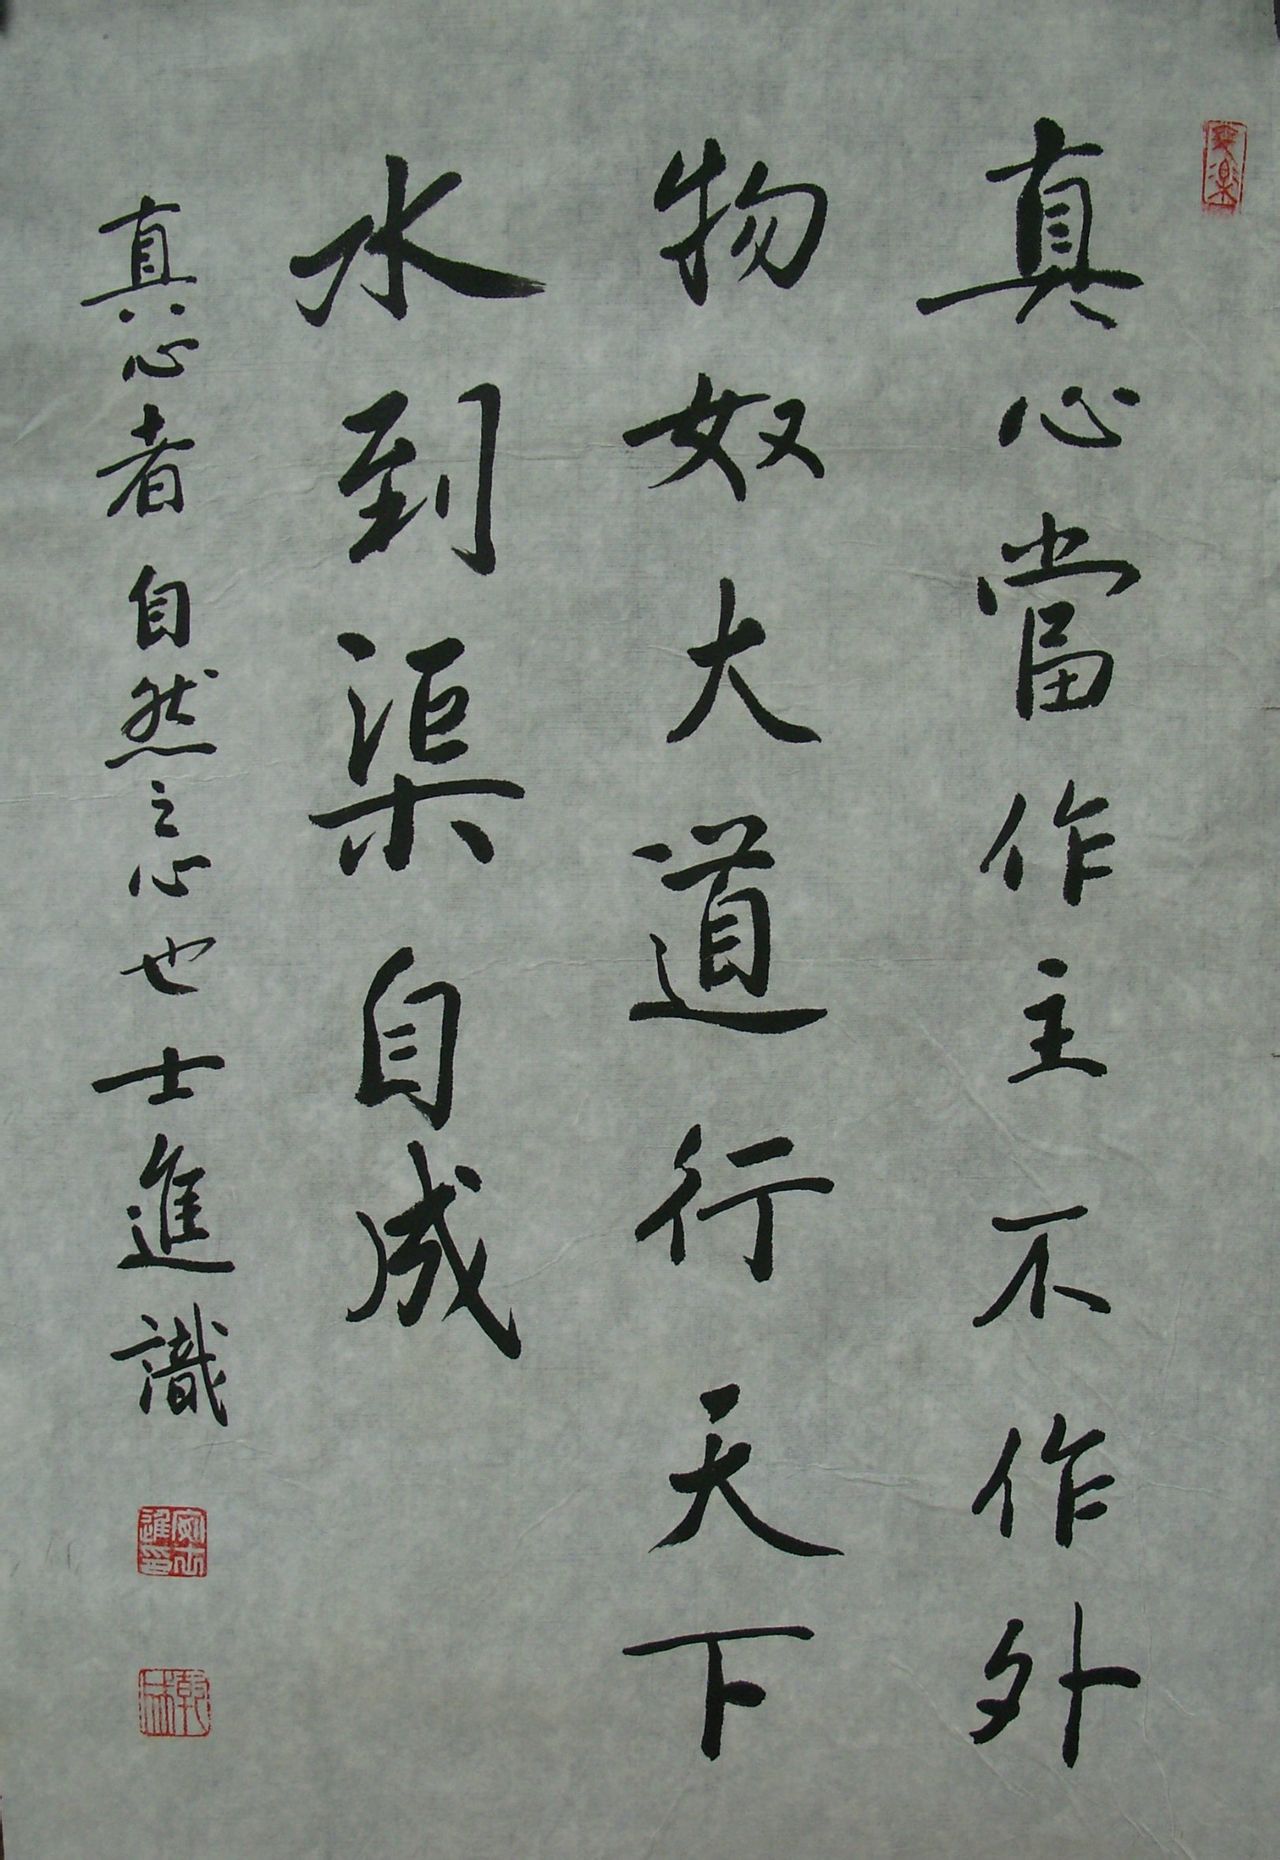 真心當作主不作外
物奴大道行天下
水到渠自成
真心者自然之心也士進識